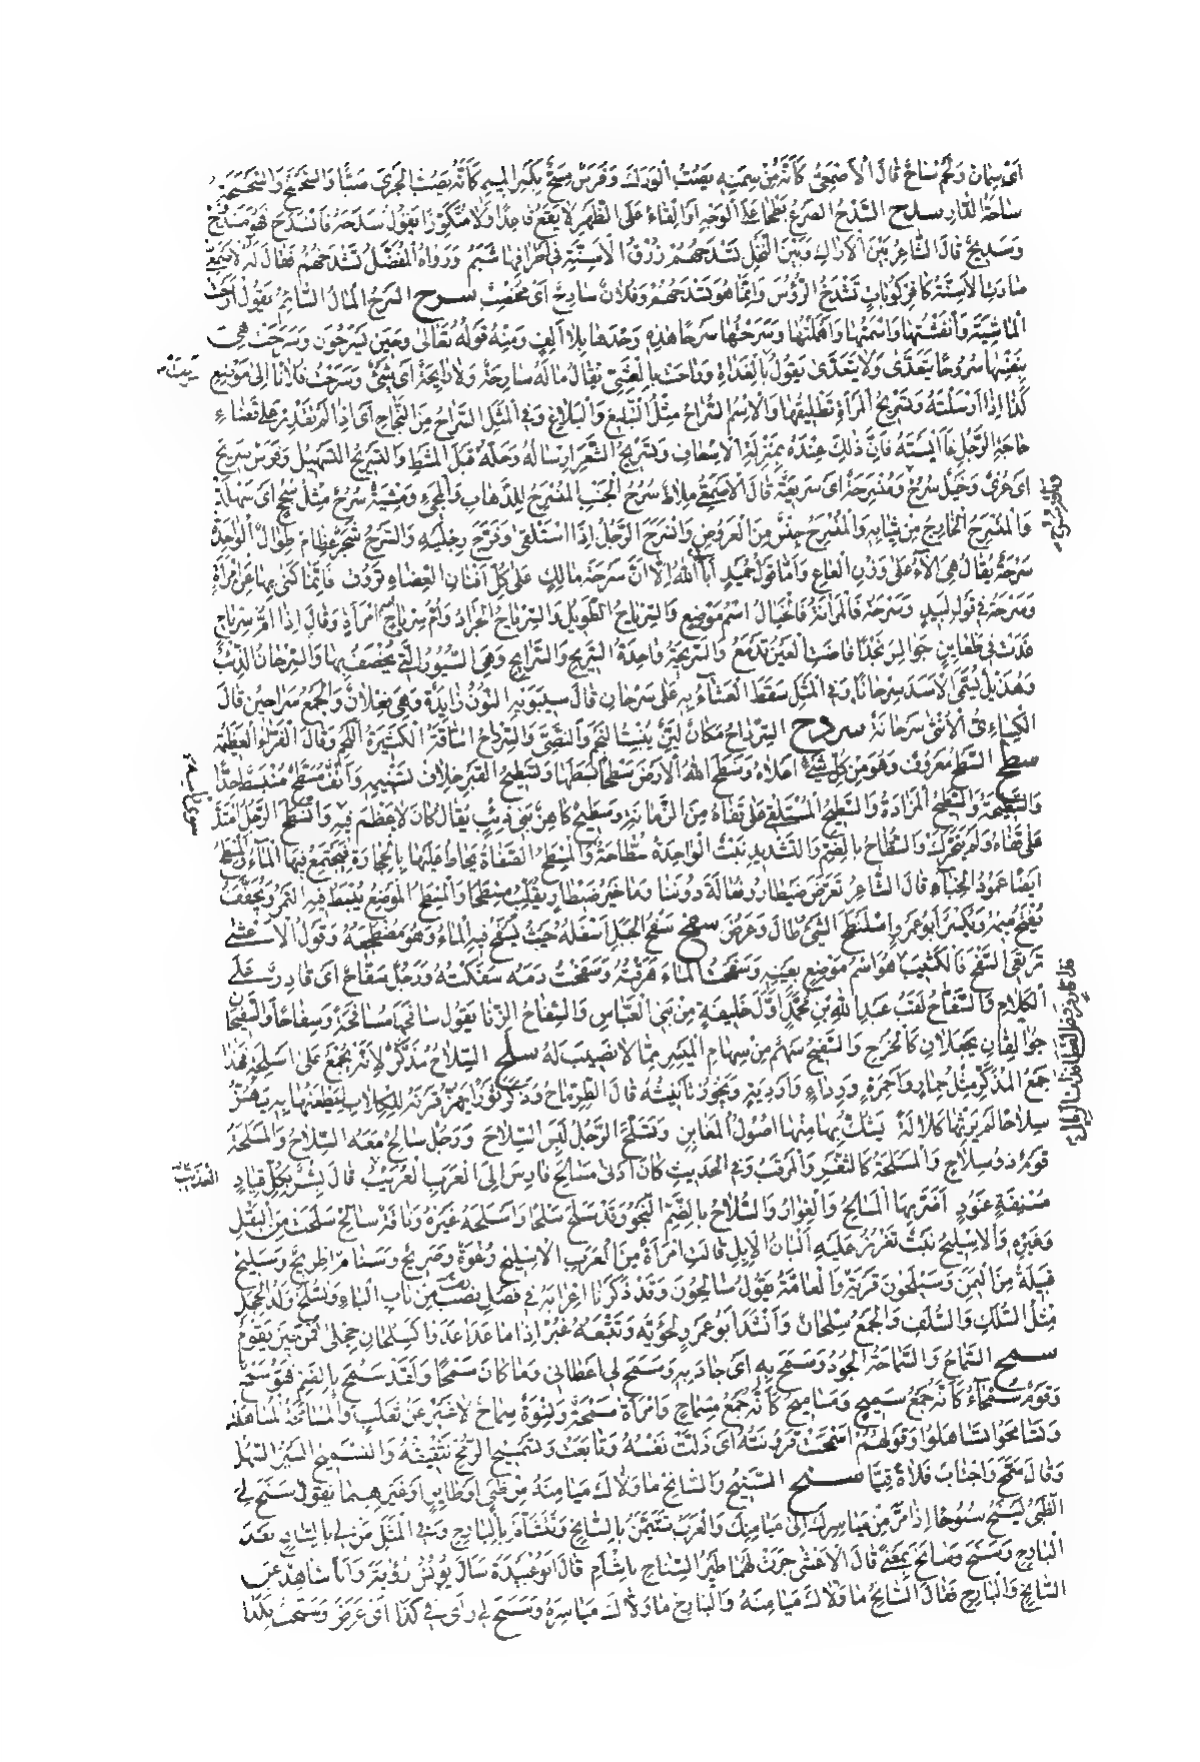 اى سمان ولحم ساح قال الاصمعى كانه من سمنه يصب الودك وفرس مسح بكسر الميم كانه يصب الجرى صبا والسحسح والسحسحة
ساحة الدار سدح السدح الصرع بطحا على الوجه او القاء على الظهر لا يقع قاعدا ولا متكورا يقول سدحه فانسدح فهو مسدوح
وسديح قال الشاعر بين الاراك وبين النخل تسدحهم زرق الاسنة فى اطرافها شبم ورواه المفضل تشدخهم فقال له الاصمعى
صارت الاسنة كافركوبات تشدخ الرؤس وانما هو تسدحهم وفلان سادح اى مخصب سرح السرح المال السائم يقول ارحت
الماشية وانفشتها واسمتها واهملتها وسرحتها سرحا هذه وحدها بلا الف ومنه قوله تعالى وحين تسرحون وسرحت هى
بنفسها سروحا يتعدى ولا يتعدى يقول بالغداة وراحت بالعشى يقال ماله سارحة ولا رائحة اى شئ وسرحت فلانا الى موضع
كذا اذا ارسلته وتسريح المراة تطليقها والاسم السراح مثل التبليغ والبلاغ وفى المثل السراح من النجاح اى اذا لم تقدر على قضاء
حاجة الرجل فايسته فان ذلك عنده بمنزلة الاسعاف وتسريح الشعر ارساله وحله قبل المشط والتسريح التسهيل وفرس سريح
اى عرى وخيل سرح وناقة سرح ومنسرحة اى سريعة قال الاصمعى ملاط سرح الجنب المنسرح للذهاب والمجئ ومشية سرح مثل سجح اى سهلة
والمنسرح الخارج من ثيابه والمنسرح جنس من العروض وانسرح الرجل اذا استلقى وفرج رجليه والسرح شجر عظام طوال الواحدة
سرحة يقال هى الآء على وزن العاع واما قول حميد ابى الله الا ان سرحة مالك على كل افنان العضاه تروق فانما كنى بها عن امراة
وسرحة فى قول لبيد وسرحة فالمرانة فالخيال اسم موضع والسرياح الطويل والسرياح الجراد وام سرياح اسم امراة وقال اذا ام سرياح
غدت فى ظعاين جوالس نجدا فاضت العين تدمع والسريحة واحدة السريح والسرايح وهى السيور التى يخصف بها والسرحان الذئب
وهذيل تسمى الاسد سرحانا وفى المثل سقط العشاء به على سرحان قال سيبويه النون زايدة وهى فعلان والجمع سراحين قال
الكسائى الانثى سرحانة سردح السرداح مكان لين ينبت النجم والنصى والسرداح الناقة الكثيرة اللحم وقال الفراء العظيمة
سطح السطح معروف وهو من كل شئ اعلاه وسطح الله الارض سطحا بسطها وتسطيح القبر خلاف تسنيمه وانف مسطح منبسط جدا
والسطيحة والسطيح المزادة والسطيح المستلقى على قفاه من الزمانة وسطيح كاهن بنى ذئب يقال كان لا عظم فيه وانسطح الرجل امتد
على قفاه ولم يتحرك والسطاح بالضم والتشديد نبت الواحدة سطاحة والمسطح الصفاة يحاط عليها بالحجارة فيجتمع فيها الماء والمسطح
ايضا عمود الخباء قال الشاعر تعرض ضيطارو فعالة دوننا وما خير ضيطار يقلب مسطحا والمسطح الموضع يبسط فيه التمر ويجفف
تفتح ميمه وتكسر ابو عمرو اسلنطح الشئ طال وعرض سفح سفح الجبل اسفله حيث يسفح فيه الماء وهو مضطجعه وقول الاعشى
ترتقى السفح فالكثيب هو اسم موضع بعينه وسفحت الماء هرقته وسفحت دمه سفكته ورجل سفاح اى قادر على
الكلام والسفاح لقب عبد الله بن محمد اول خليفة من بنى العباس والسفاح الزنا يقول سافحها مسافحة وسفاحا والسفيحان
جوالقان يجعلان كالخرج والسفيح سهم من سهام الميسر مما لا نصيب له سلح السلاح مذكر لانه يجمع على اسلحة فهذا
جمع المذكر مثل حمار واحمرة ورداء واردية ويجوز تانيثه قال الطرماح وذكر ثورا يهز قرنه للكلاب ليطعنها به يهز
سلاحا لم يرثها كلالة يشك بها منها اصول المغابن وتسلح الرجل لبس السلاح ورجل سالح معه السلاح والمسلحة
قوم ذو سلاح والمسلحة كالثغر والمرقب وفى الحديث كان ادنى مسالح فارس الى العرب العذيب قال بشر بكل قياد
مسنفة عنود اضر بها المسالح والغوار والسلاح بالضم النجو وقد سلح سلحا واسلحه غيره وناقة سالح سلحت من البقل
وغيره والاسليح نبت تغزر عليه البان الابل قالت امراة من العرب الاسليح رغوة وصريح وسنام اطريح وسليح
قبيلة من اليمن وسيلحون قرية والعامة يقول سالحون وقد ذكرنا اعرابه فى فصل نصب من باب الباء والسلح ولد الحجل
مثل السلك والسلف والجمع سلحان وانشد ابو عمرو لجؤية وتتبعه غبر اذا ما عدا عدوا كسلحان حجلى قمن حين يقوم
سمح السماح والسماحة الجود وسمح به اى جاد به وسمح لى اعطانى وما كان سمحا ولقد سمح بالضم فهو سمح
وقوم سمحاء كانه جمع سميح ومساميح كانه جمع مسماح وامراة سمحة ونسوة سماح لا غير عن ثعلب والمسامحة المساهلة
وتسامحوا تساهلوا وقولهم اسمحت قرونته اى ذلت نفسه وتابعت وتسميح الرمح تثقيفه والتسميح السير السهل
وقال سمح واجتاب فلاة قيا سنح السنيح والسانح ما ولاك ميامنه من ظبى او طاير وغيرهما يقول سنح لى
الظبى يسنح سنوحا اذا مر من مياسرك الى ميامنك والعرب تتيمن بالسانح وتتشاءم بالبارح وفى المثل من لى بالسانح بعد
البارح وسنح وسانح بمعنى قال الاعشى جرت لهما طير السناح باشام قال ابو عبيدة سال يونس رؤبة وانا شاهد عن
السانح والبارح فقال السانح ما ولاك ميامنه والبارح ما ولاك مياسره وسنح لى راى فى كذا اى عرض وسنحت بكذا
العذيب